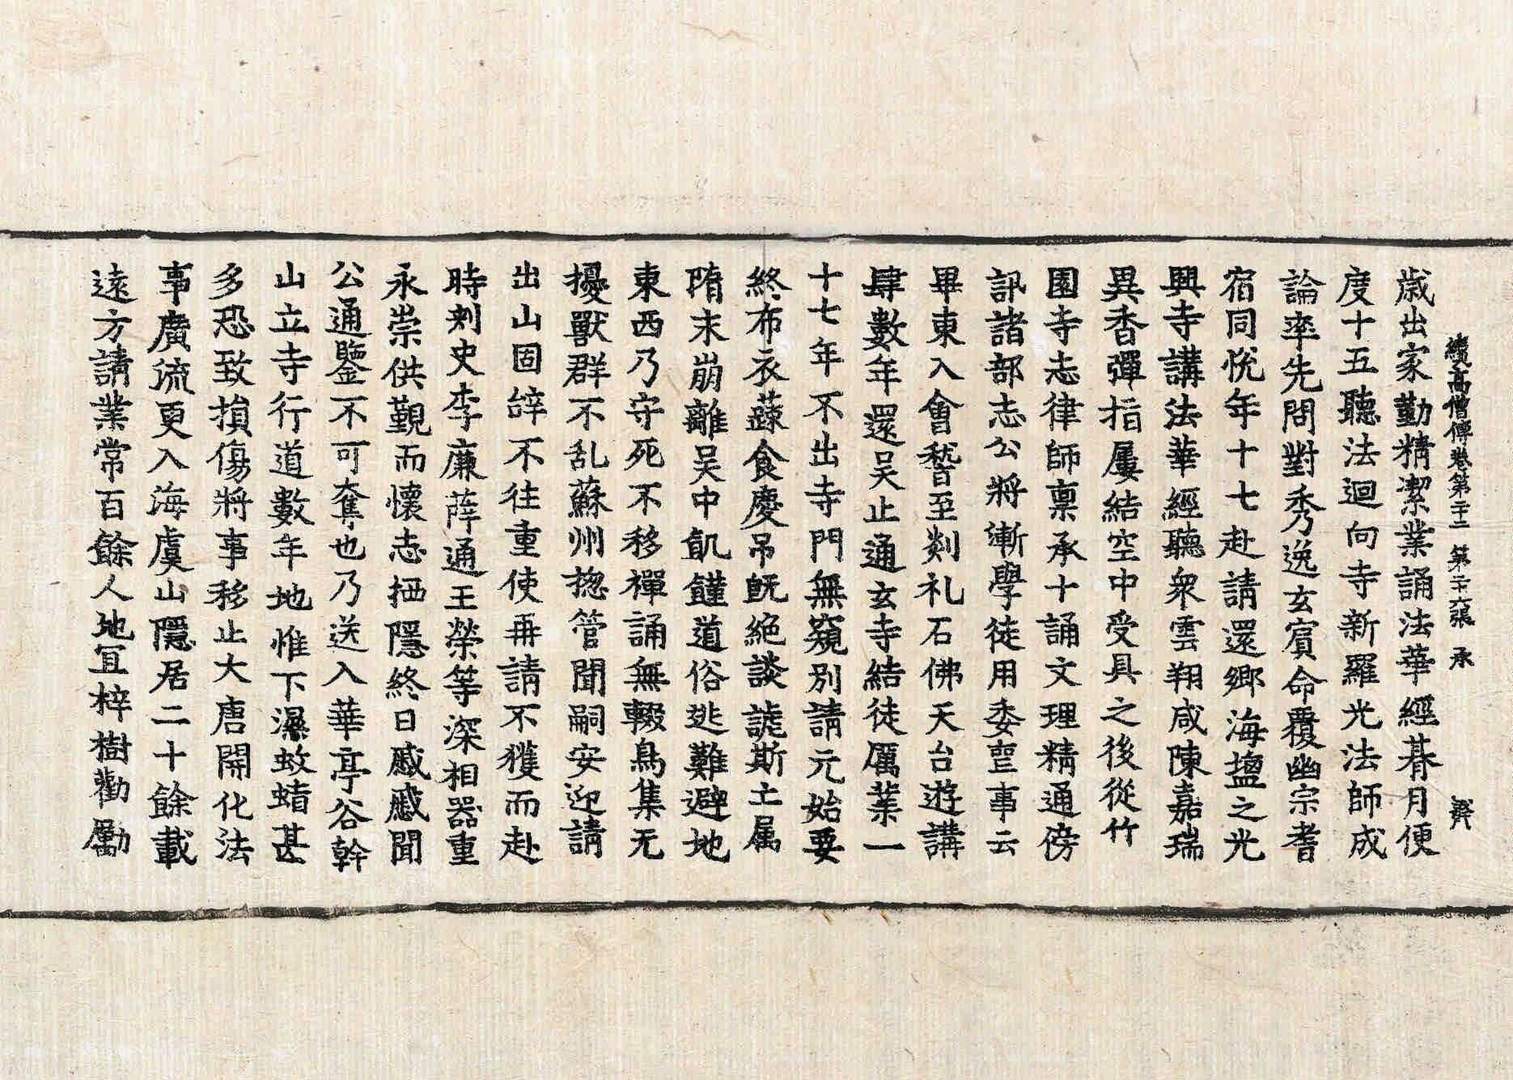 續高僧傳卷第二十二　第二十六張　承
歲出家勤精潔業誦法華經朞月便
度十五聽法迴向寺新羅光法師成
論率先問對秀逸玄賔命覆幽宗耆
宿同悅年十七赴請還鄉海塩之光
興寺講法華經聽衆雲翔咸陳嘉瑞
異香彈指屢結空中受具之後從竹
園寺志律師禀承十誦文理精通傍
訊諸部志公將漸學徒用委晝事云
畢東入會稽至剡礼石佛天台遊講
肆數年還吴止通玄寺結徒厲業一
十七年不出寺門無窺別請元始要
終布衣蔬食慶吊旣絶談謔斯土属
隋末崩離吴中飢饉道俗逃難避地
東西乃守死不移禪誦無輟鳥集无
擾獸群不乱蘇州揔管聞嗣安迎請
出山固辝不往重使再請不獲而赴
時刾史李廉薛通王榮等深相器重
永崇供覲而懷志栖隱終日慼慼聞
公通鑒不可奪也乃送入華亭谷幹
山立寺行道數年地惟下濕蚊蝱甚
多恐致損傷將事移止大唐開化法
事廣流更入海虞山隱居二十餘載
遠方請業常百餘人地冝梓樹勸勵